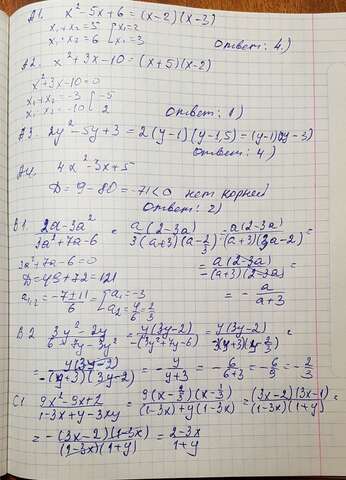 A1. x² - 5x + 6 = (x - 2)(x - 3)
x₁ + x₂ = 5 { x₁ = 2
x₁ · x₂ = 6 { x₁ = 3
Ответ: 4.)
A2. x² + 3x - 10 = (x + 5)(x - 2)
x² + 3x - 10 = 0
x₁ + x₂ = -3 { -5
x₁ · x₂ = -10 { 2
Ответ: 1)
A3. 2y² - 5y + 3 = 2(y - 1)(y - 1,5) = (y - 1)(2y - 3)
Ответ: 4)
A4. 4x² - 3x + 5
D = 9 - 80 = -71 < 0 нет корней
Ответ: 2)
B1 (2a - 3a²)/(3a² + 7a - 6) = a(2 - 3a)/(3(a + 3)(a - 2/3)) = a(2 - 3a)/((a + 3)(3a - 2)) =
3a² + 7a - 6 = 0
= a(2 - 3a)/(-(a + 3)(2 - 3a)) =
D = 49 + 72 = 121
a₁,₂ = (-7 ± 11)/6 = { a₁ = -3
a₂ = 4/6 = 2/3
= - a/(a + 3)
B2 (3y² - 2y)/(6 - 7y - 3y²) = y(3y - 2)/(-(3y² + 7y - 6)) = y(3y - 2)/(-3(y + 3)(y - 2/3)) =
= y(3y - 2)/(-(y + 3)(3y - 2)) = - y/(y + 3) = - 6/(6 + 3) = - 6/9 = - 2/3
C1 (9x² - 9x + 2)/(1 - 3x + y - 3xy) = 9(x - 2/3)(x - 1/3)/((1 - 3x) + y(1 - 3x)) = (3x - 2)(3x - 1)/((1 - 3x)(1 + y)) =
= -(3x - 2)(1 - 3x)/((1 - 3x)(1 + y)) = (2 - 3x)/(1 + y)